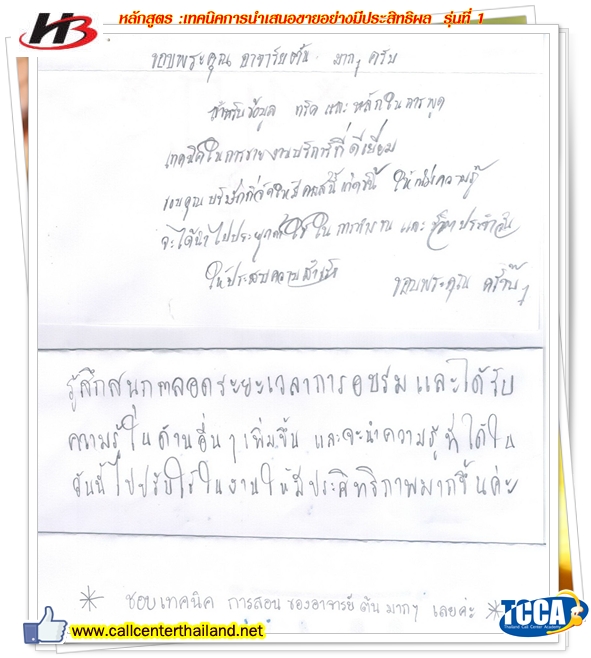 H3
หลักสูตร :เทคนิคการนำเสนอขายอย่างมีประสิทธิผล รุ่นที่ 1
ขอบพระคุณ อาจารย์ต้น มากๆ ครับ
สำหรับข้อมูล ทริค และ หลักในการพูด
เทคนิคในการขาย งานบริการที่ดีเยี่ยม
ขอบคุณบริษัทที่จัดให้มีคอสนี้เกิดขึ้น ให้ความรู้
จะได้นำไปประยุกต์ใช้ในการทำงาน และ ชีวิตประจำวัน
ให้ประสบความสำเร็จ ขอบพระคุณ ครับๆ
รู้สึกสนุกตลอดระยะเวลาการอบรม และได้รับ
ความรู้ในด้านอื่นๆ เพิ่มขึ้น และจะนำความรู้ที่ได้ใน
วันนี้ไปปรับใช้ในงานให้มีประสิทธิภาพมากขึ้นค่ะ
* ชอบเทคนิค การสอน ของอาจารย์ ต้น มากๆ เลยค่ะ *
www.callcenterthailand.net
TCCA
Thailand Call Center Academy